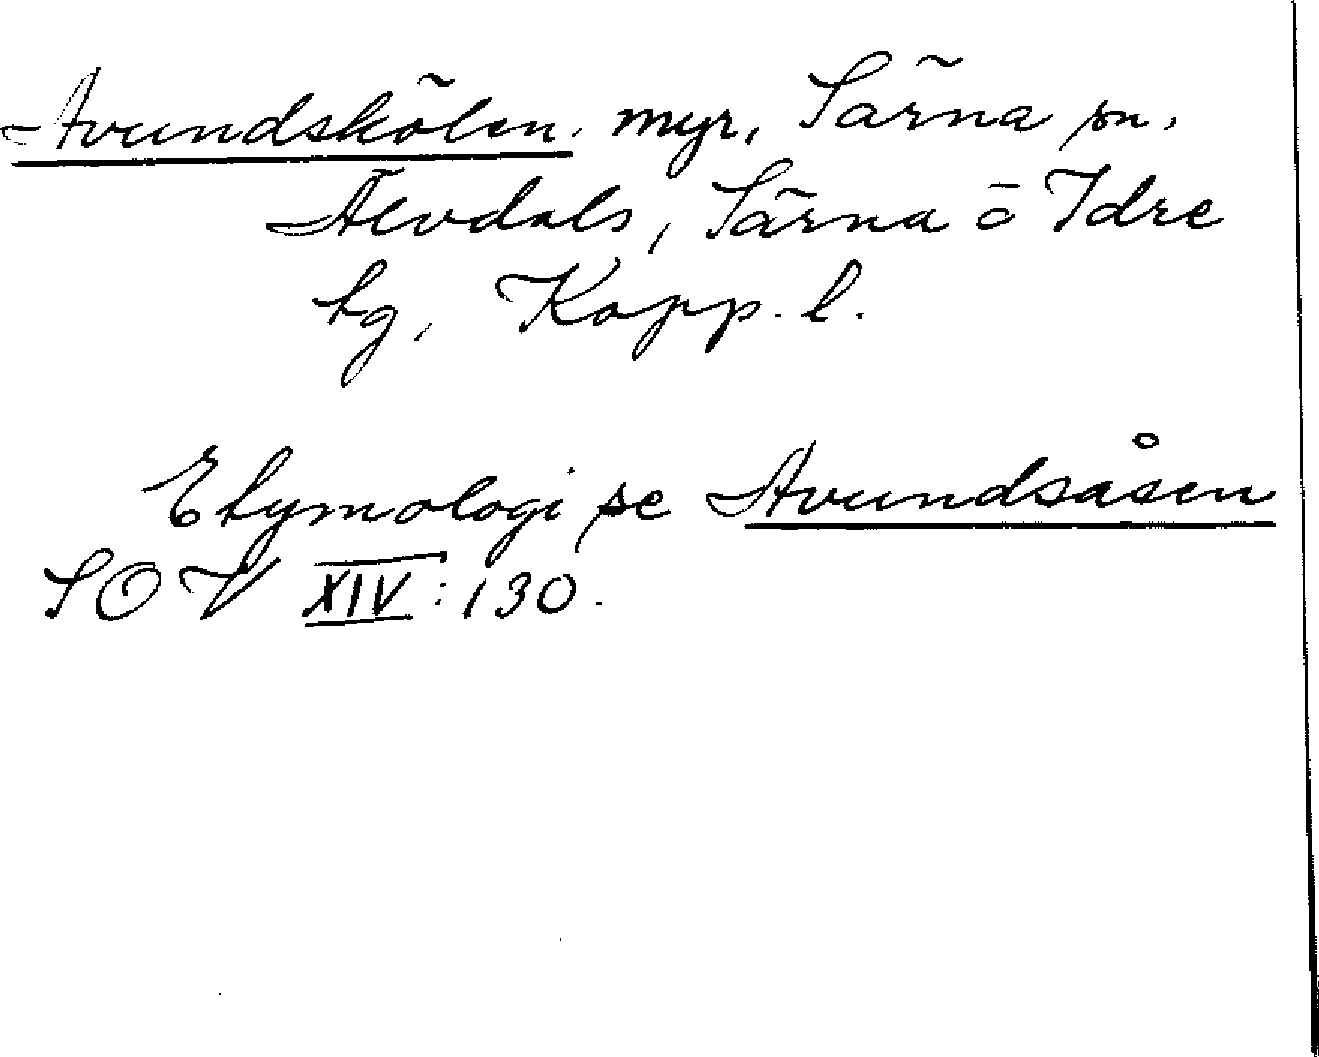 Avundskölen. myr, Särna sn,
Älvdals, Särna ō Idre
tg, Kopp. l.
Etymologi se Avundsåsen
SOV XIV:130.